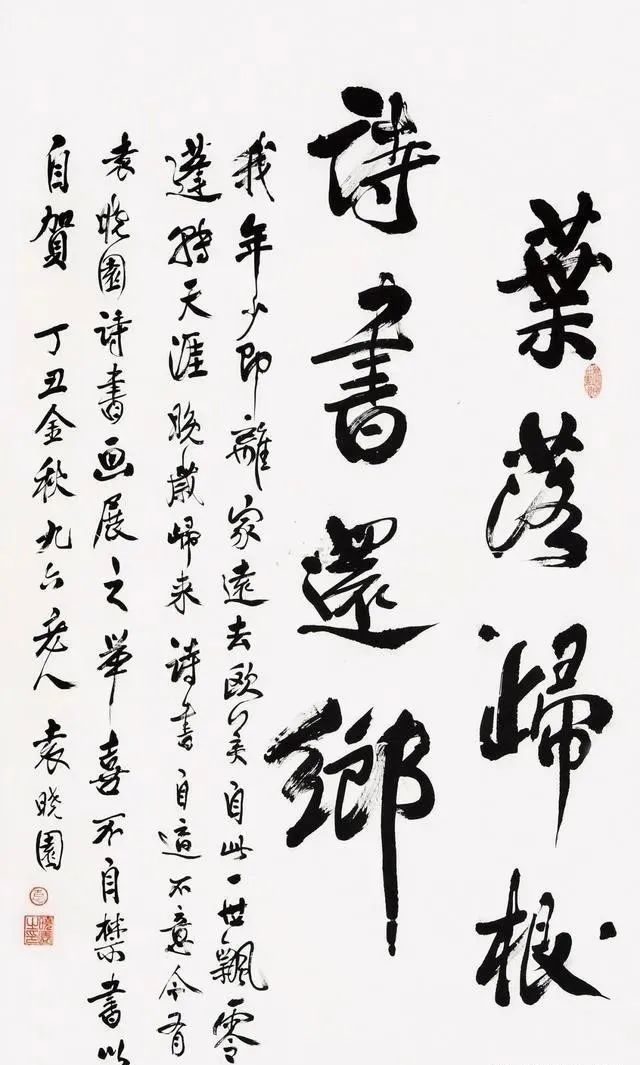 葉落歸根
詩書還鄉
我年少即離家遠去欧美自此一世飄零
蓬轉天涯晚歲歸来詩書自適不意今有
袁晓園詩書画展之举喜不自禁書以
自賀 丁丑金秋九六老人 袁晓園